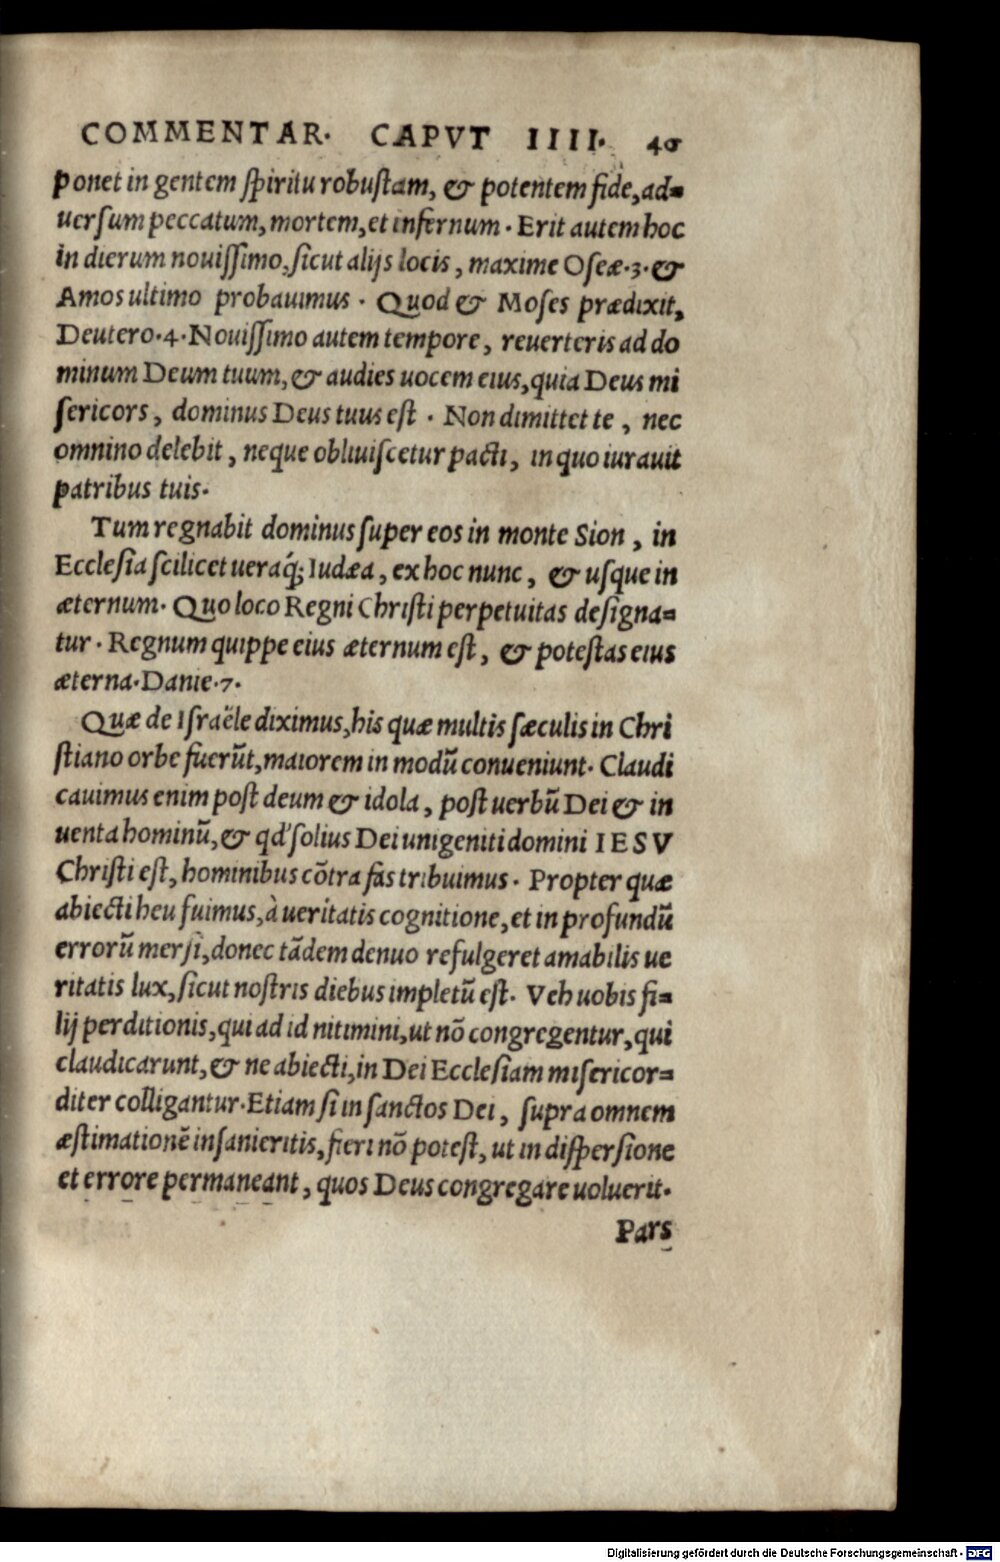 COMMENTAR. CAPVT IIII. 40
ponet in gentem ſpiritu robuſtam, & potentem fide, ad=
uerſum peccatum, mortem, et infernum. Erit autem hoc
in dierum nouiſſimo, ſicut alijs locis, maxime Oſeæ.3. &
Amos ultimo probauimus. Quod & Moſes prædixit,
Deutero.4. Nouiſſimo autem tempore, reuerteris ad do
minum Deum tuum, & audies uocem eius, quia Deus mi
ſericors, dominus Deus tuus eſt. Non dimittet te, nec
omnino delebit, neque obliuiſcetur pacti, in quo iurauit
patribus tuis.
Tum regnabit dominus ſuper eos in monte Sion, in
Eccleſia ſcilicet ueraq́; Iudæa, ex hoc nunc, & uſque in
æternum. Quo loco Regni Chriſti perpetuitas deſigna=
tur. Regnum quippe eius æternum eſt, & poteſtas eius
æterna. Danie.7.
Quæ de Iſraële diximus, his quæ multis ſæculis in Chri
ſtiano orbe fuerūt, maiorem in modū conueniunt. Claudi
cauimus enim poſt deum & idola, poſt uerbū Dei & in
uenta hominū, & qd' ſolius Dei unigeniti domini IESV
Chriſti eſt, hominibus cōtra fas tribuimus. Propter quæ
abiecti heu fuimus, à ueritatis cognitione, et in profundū
errorū merſi, donec tādem denuo refulgeret amabilis ue
ritatis lux, ſicut noſtris diebus impletū eſt. Veh uobis fi=
lij perditionis, qui ad id nitimini, ut nō congregentur, qui
claudicarunt, & ne abiecti, in Dei Eccleſiam miſericor=
diter colligantur. Etiam ſi in ſanctos Dei, ſupra omnem
æſtimationē inſanieritis, fieri nō poteſt, ut in diſperſione
et errore permaneant, quos Deus congregare uoluerit.
Pars
Digitalisierung gefördert durch die Deutsche Forschungsgemeinschaft - DFG